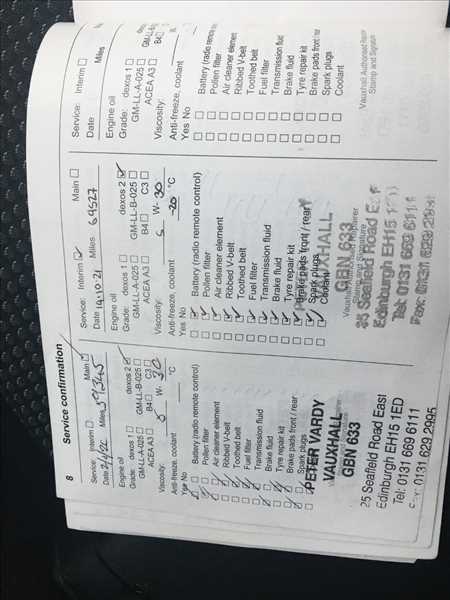 8
Service confirmation
Service: Interim Main
Date Miles
Engine oil
Grade: dexos 1 dexos 2
GM-LL-A-025 GM-LL-B-025
ACEA A3 B4 C3
Viscosity: 5 W- 30
Anti-freeze, coolant °C
Yes No
Battery (radio remote control)
Pollen filter
Air cleaner element
Ribbed V-belt
Toothed belt
Fuel filter
Transmission fluid
Brake fluid
Tyre repair kit
Brake pads front / rear
Spark plugs
PETER VARDY
VAUXHALL
GBN 633
25 Seafield Road East
Edinburgh EH15 1ED
Tel: 0131 669 6111
Fax: 0131 629 2995
Service: Interim Main
Date 14.10.21 Miles 69527
Engine oil
Grade: dexos 1 dexos 2
GM-LL-A-025 GM-LL-B-025
ACEA A3 B4 C3
Viscosity: 5 W- 30
Anti-freeze, coolant -20 °C
Yes No
Battery (radio remote control)
Pollen filter
Air cleaner element
Ribbed V-belt
Toothed belt
Fuel filter
Transmission fluid
Brake fluid
Tyre repair kit
Brake pads front / rear
Spark plugs
Coolant
VAUXHALL
GBN 633
Vauxhall Authorised Repairer
Stamp and Signature
25 Seafield Road East
Edinburgh EH15 1ED
Tel: 0131 669 6111
Fax: 0131 629 2995
Service: Interim
Date Miles
Engine oil
Grade: dexos 1
GM-LL-A-025
ACEA A3 B4
Viscosity:
Anti-freeze, coolant
Yes No
Battery (radio remote
Pollen filter
Air cleaner element
Ribbed V-belt
Toothed belt
Fuel filter
Transmission fluid
Brake fluid
Tyre repair kit
Brake pads front /
Spark plugs
Coolant
Vauxhall Authorised
Stamp and